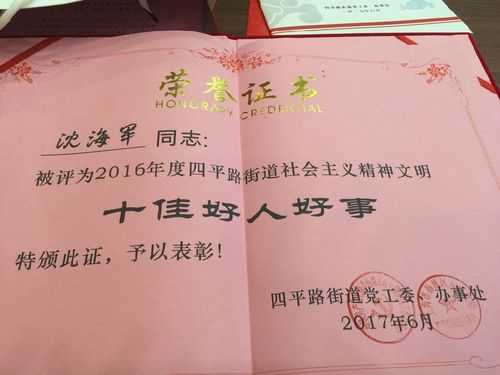 荣誉证书
HONORARY CREDENTIAL
沈海军 同志:
被评为2016年度四平路街道社会主义精神文明
十佳好人好事
特颁此证，予以表彰!
四平路街道党工委、办事处
2017年6月